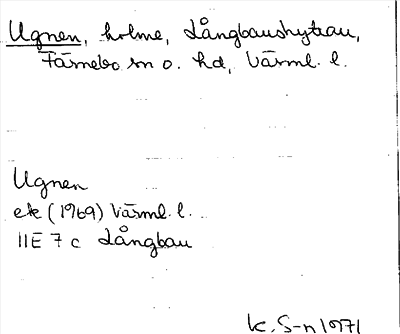 Ugnen, holme, Långbanshyttan,
Färnebo sn o. hd, Värml. l.
Ugnen
ek (1969) Värml. l.
11E 7 c Långban
K. S-n 1971